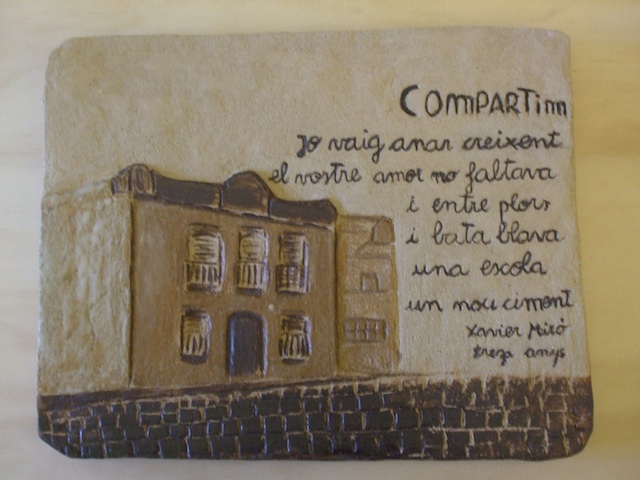 COMPARTim
Jo vaig anar creixent
el vostre amor no faltava
i entre plors
i bata blava
una escola
un nou ciment
Xavier Miró
tretze anys